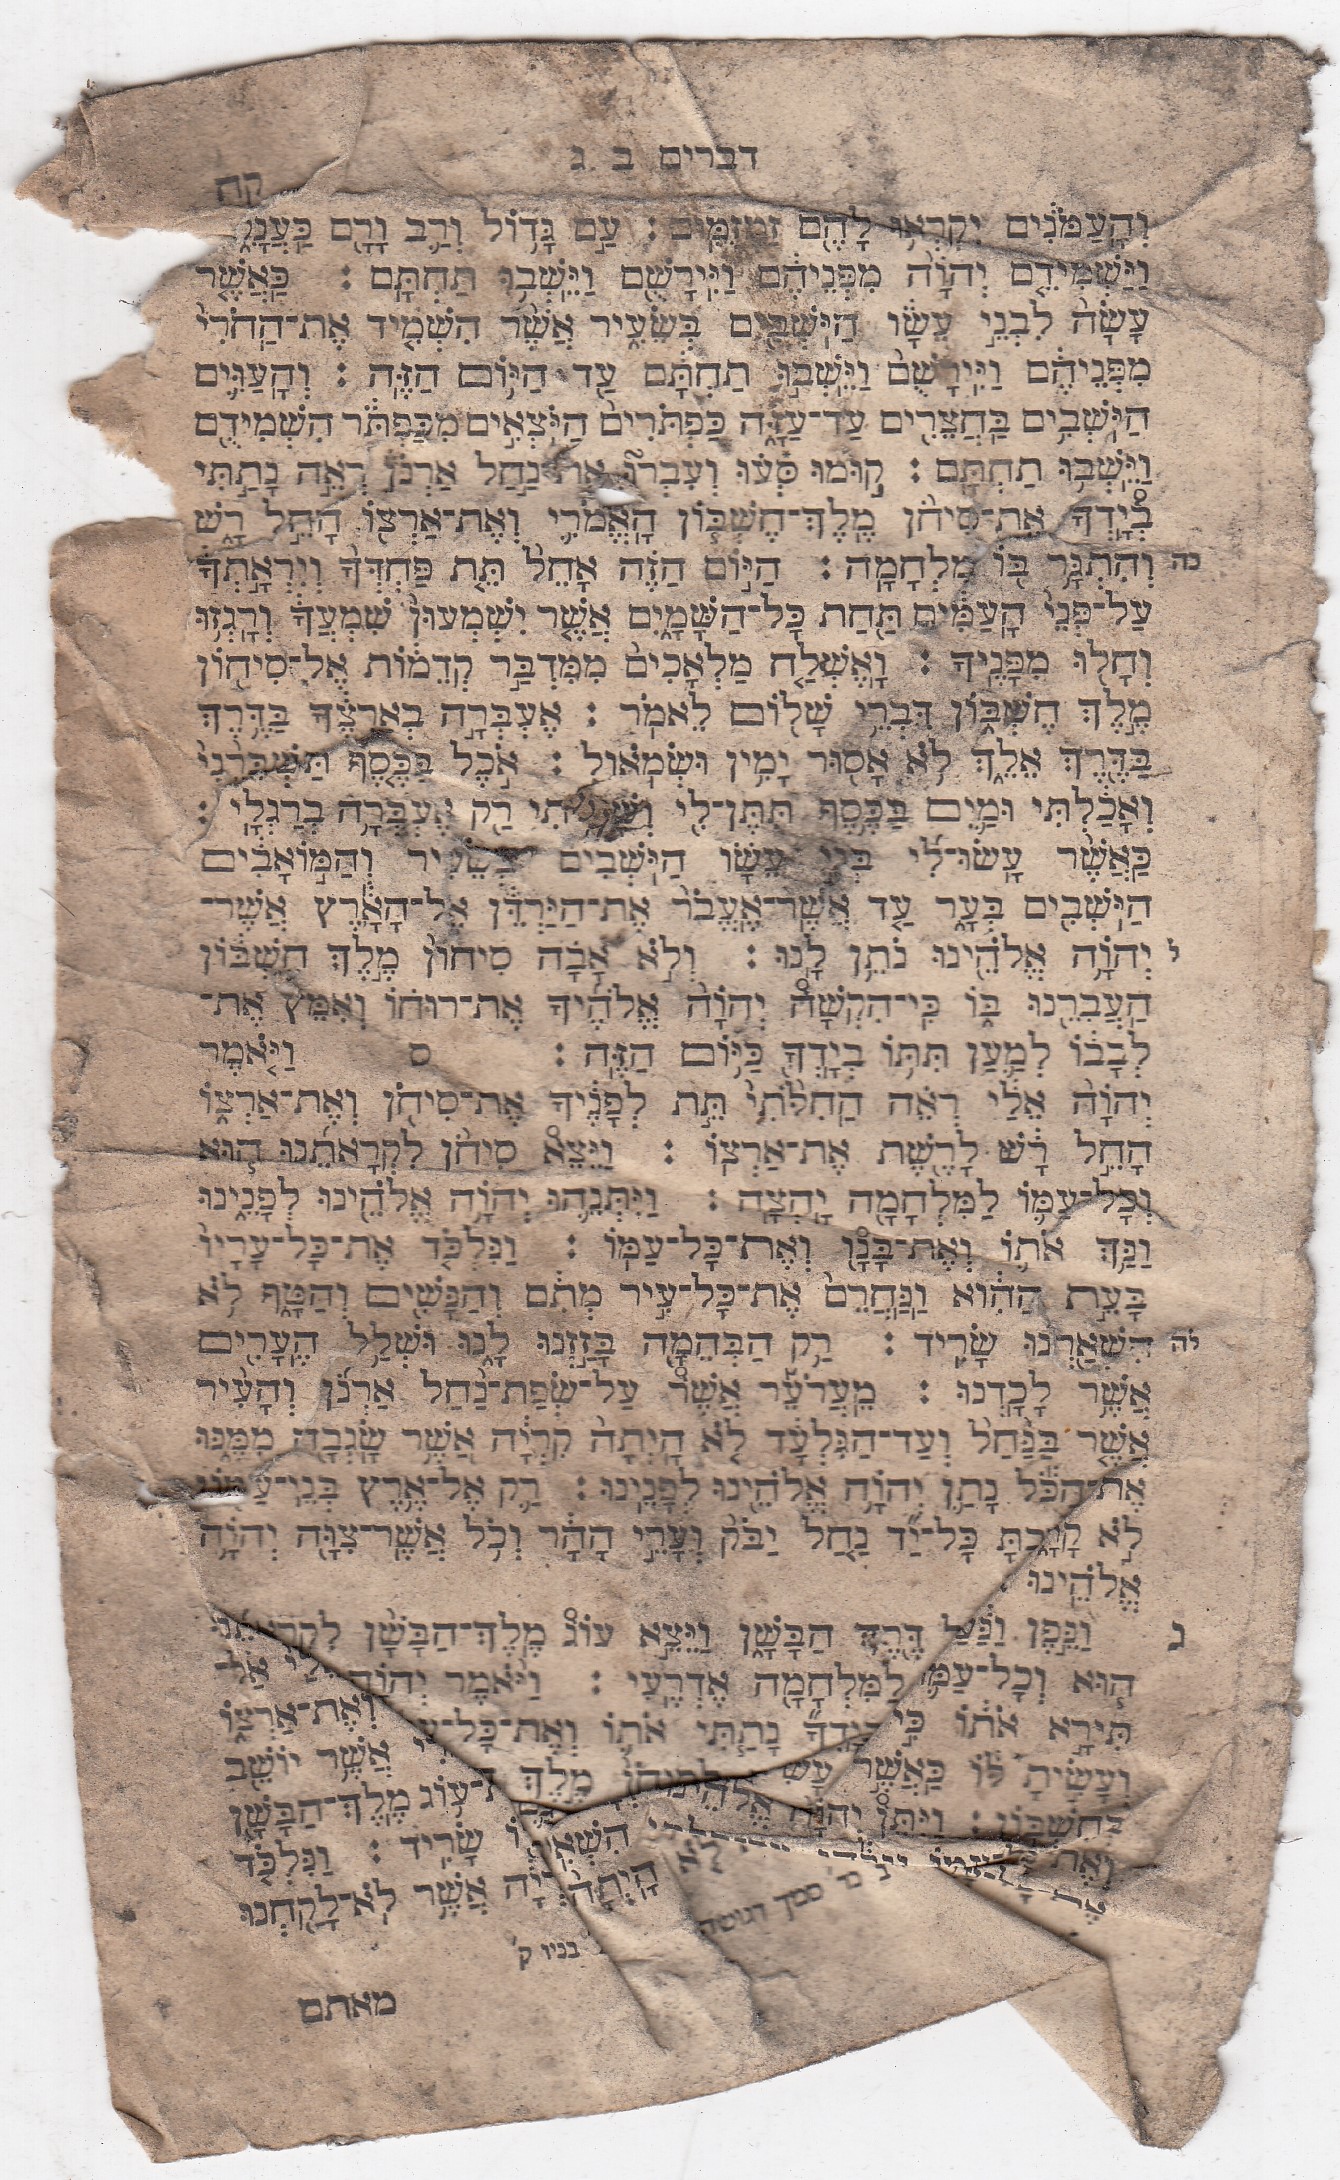 דברים ב ג
קח
וְהָעַמֹּנִים יִקְרְאוּ לָהֶם זַמְזֻמִּים׃ עַם גָּדוֹל וְרַב וָרָם כַּעֲנָקִים
וַיַּשְׁמִידֵם יְהוָה מִפְּנֵיהֶם וַיִּירָשֻׁם וַיֵּשְׁבוּ תַחְתָּם׃ כַּאֲשֶׁר
עָשָׂה לִבְנֵי עֵשָׂו הַיֹּשְׁבִים בְּשֵׂעִיר אֲשֶׁר הִשְׁמִיד אֶת־הַחֹרִי
מִפְּנֵיהֶם וַיִּירָשֻׁם וַיֵּשְׁבוּ תַחְתָּם עַד הַיּוֹם הַזֶּה׃ וְהָעַוִּים
הַיֹּשְׁבִים בַּחֲצֵרִים עַד־עַזָּה כַּפְתֹּרִים הַיֹּצְאִים מִכַּפְתֹּר הִשְׁמִידֻם
וַיֵּשְׁבוּ תַחְתָּם׃ קוּמוּ סְּעוּ וְעִבְרוּ אֶת־נַחַל אַרְנֹן רְאֵה נָתַתִּי
בְיָדְךָ אֶת־סִיחֹן מֶלֶךְ־חֶשְׁבּוֹן הָאֱמֹרִי וְאֶת־אַרְצוֹ הָחֵל רָשׁ
כה וְהִתְגָּר בּוֹ מִלְחָמָה׃ הַיּוֹם הַזֶּה אָחֵל תֵּת פַּחְדְּךָ וְיִרְאָתְךָ
עַל־פְּנֵי הָעַמִּים תַּחַת כָּל־הַשָּׁמָיִם אֲשֶׁר יִשְׁמְעוּן שִׁמְעֲךָ וְרָגְזוּ
וְחָלוּ מִפָּנֶיךָ׃ וָאֶשְׁלַח מַלְאָכִים מִמִּדְבַּר קְדֵמוֹת אֶל־סִיחוֹן
מֶלֶךְ חֶשְׁבּוֹן דִּבְרֵי שָׁלוֹם לֵאמֹר׃ אֶעְבְּרָה בְאַרְצֶךָ בַּדֶּרֶךְ
בַּדֶּרֶךְ אֵלֵךְ לֹא אָסוּר יָמִין וּשְׂמֹאול׃ אֹכֶל בַּכֶּסֶף תַּשְׁבִּרֵנִי
וְאָכַלְתִּי וּמַיִם בַּכֶּסֶף תִּתֶּן־לִי וְשָׁתִיתִי רַק אֶעְבְּרָה בְרַגְלָי׃
כַּאֲשֶׁר עָשׂוּ־לִי בְּנֵי עֵשָׂו הַיֹּשְׁבִים בְּשֵׂעִיר וְהַמּוֹאָבִים
הַיֹּשְׁבִים בְּעָר עַד אֲשֶׁר־אֶעֱבֹר אֶת־הַיַּרְדֵּן אֶל־הָאָרֶץ אֲשֶׁר־
ל יְהוָה אֱלֹהֵינוּ נֹתֵן לָנוּ׃ וְלֹא אָבָה סִיחֹון מֶלֶךְ חֶשְׁבּוֹן
הַעֲבִרֵנוּ בּוֹ כִּי־הִקְשָׁה יְהוָה אֱלֹהֶיךָ אֶת־רוּחוֹ וְאִמֵּץ אֶת־
לְבָבוֹ לְמַעַן תִּתּוֹ בְיָדְךָ כַּיּוֹם הַזֶּה׃ ס וַיֹּאמֶר
יְהוָה אֵלַי רְאֵה הַחִלֹּתִי תֵּת לְפָנֶיךָ אֶת־סִיחֹן וְאֶת־אַרְצוֹ
הָחֵל רָשׁ לָרֶשֶׁת אֶת־אַרְצוֹ׃ וַיֵּצֵא סִיחֹן לִקְרָאתֵנוּ הוּא
וְכָל־עַמּוֹ לַמִּלְחָמָה יָהְצָה׃ וַיִּתְּנֵהוּ יְהוָה אֱלֹהֵינוּ לְפָנֵינוּ
וַנַּךְ אֹתוֹ וְאֶת־בָּנָו וְאֶת־כָּל־עַמּוֹ׃ וַנִּלְכֹּד אֶת־כָּל־עָרָיו
בָּעֵת הַהִוא וַנַּחֲרֵם אֶת־כָּל־עִיר מְתִם וְהַנָּשִׁים וְהַטָּף לֹא
לה הִשְׁאַרְנוּ שָׂרִיד׃ רַק הַבְּהֵמָה בָּזַזְנוּ לָנוּ וּשְׁלַל הֶעָרִים
אֲשֶׁר לָכָדְנוּ׃ מֵעֲרֹעֵר אֲשֶׁר עַל־שְׂפַת־נַחַל אַרְנֹן וְהָעִיר
אֲשֶׁר בַּנַּחַל וְעַד־הַגִּלְעָד לֹא הָיְתָה קִרְיָה אֲשֶׁר שָׂגְבָה מִמֶּנּוּ
אֶת־הַכֹּל נָתַן יְהוָה אֱלֹהֵינוּ לְפָנֵינוּ׃ רַק אֶל־אֶרֶץ בְּנֵי־עַמּוֹן
לֹא קָרָבְתָּ כָּל־יַד נַחַל יַבֹּק וְעָרֵי הָהָר וְכֹל אֲשֶׁר־צִוָּה יְהוָה
אֱלֹהֵינוּ׃
ג וַנֵּפֶן וַנַּעַל דֶּרֶךְ הַבָּשָׁן וַיֵּצֵא עוֹג מֶלֶךְ־הַבָּשָׁן לִקְרָאתֵנוּ
הוּא וְכָל־עַמּוֹ לַמִּלְחָמָה אֶדְרֶעִי׃ וַיֹּאמֶר יְהוָה אֵלַי אַל־
תִּירָא אֹתוֹ כִּי בְיָדְךָ נָתַתִּי אֹתוֹ וְאֶת־כָּל־ וְאֶת־אַרְצוֹ
וְעָשִׂיתָ לּוֹ כַּאֲשֶׁר מֶלֶךְ אֲשֶׁר יוֹשֵׁב
בְּחֶשְׁבּוֹן׃ וַיִּתֵּן יְהוָה אֱלֹהֵינוּ עוֹג מֶלֶךְ־הַבָּשָׁן
וְאֶת־ שָׂרִיד׃ וַנִּלְכֹּד
אֶת לֹא הָיְתָה אֲשֶׁר לֹא־לָקַחְנוּ
סמך דגושה
בניו ק
מאתם